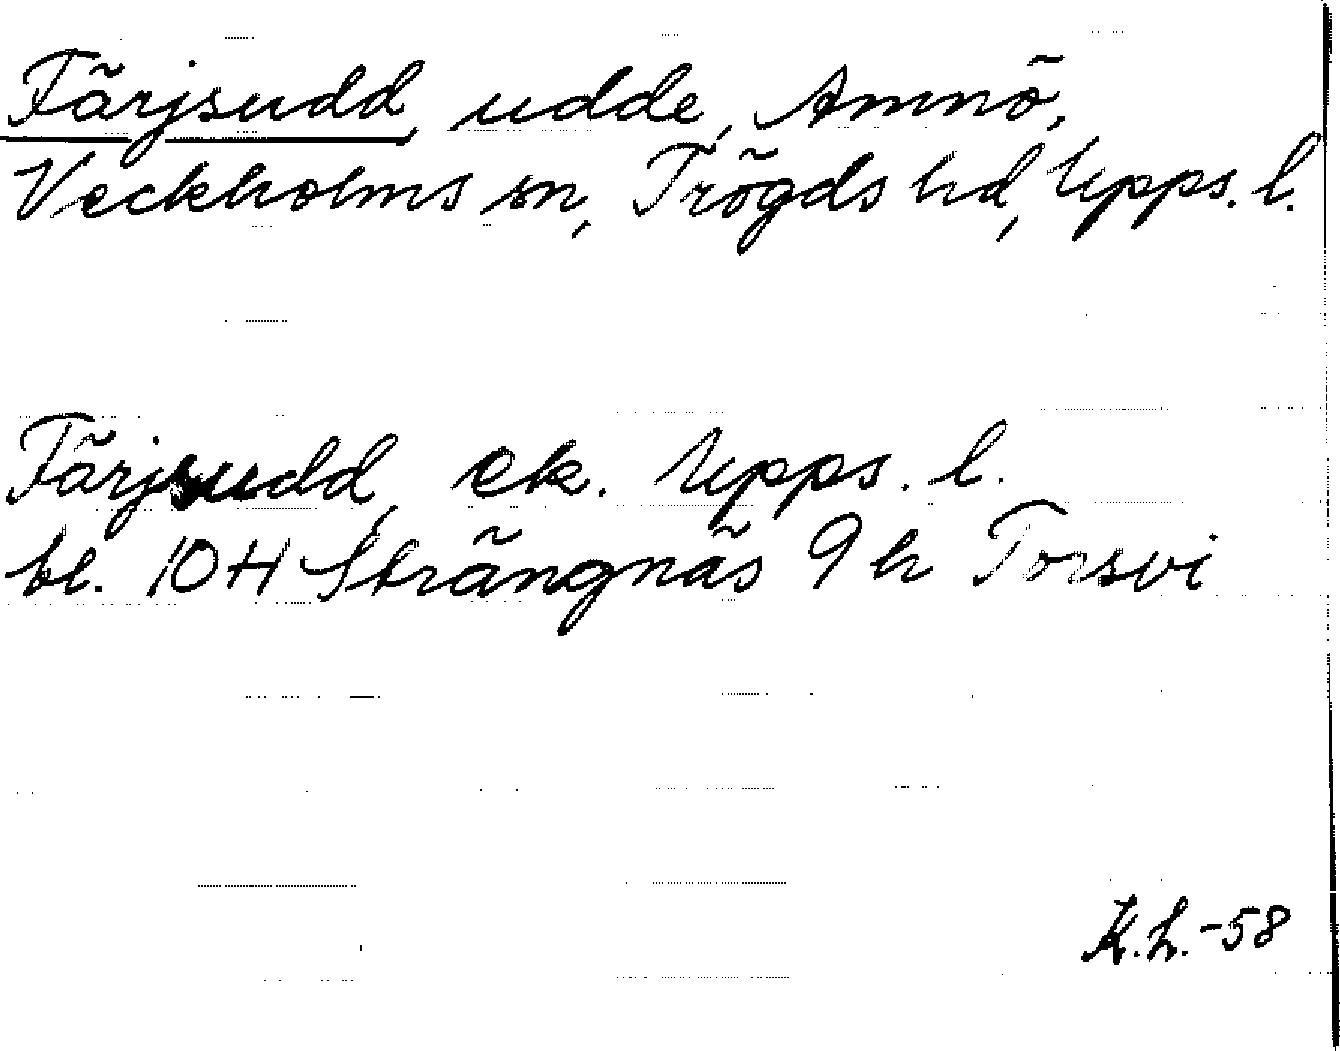 Färjsudd, udde, Amnö,
Veckholms sn, Trögds hd, Upps. l.
Färjsudd, ek. Upps. l.
bl. 10 H Strängnäs 9 h Torsvi
K.h. -58